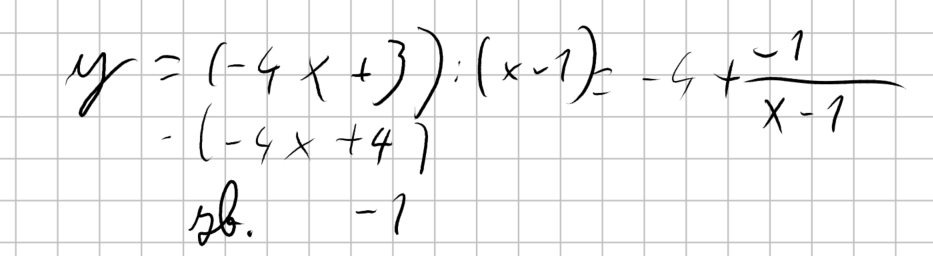 y = (-4x+3):(x-1) = -4 + \frac{-1}{x-1}
-(-4x+4)
zb. -1